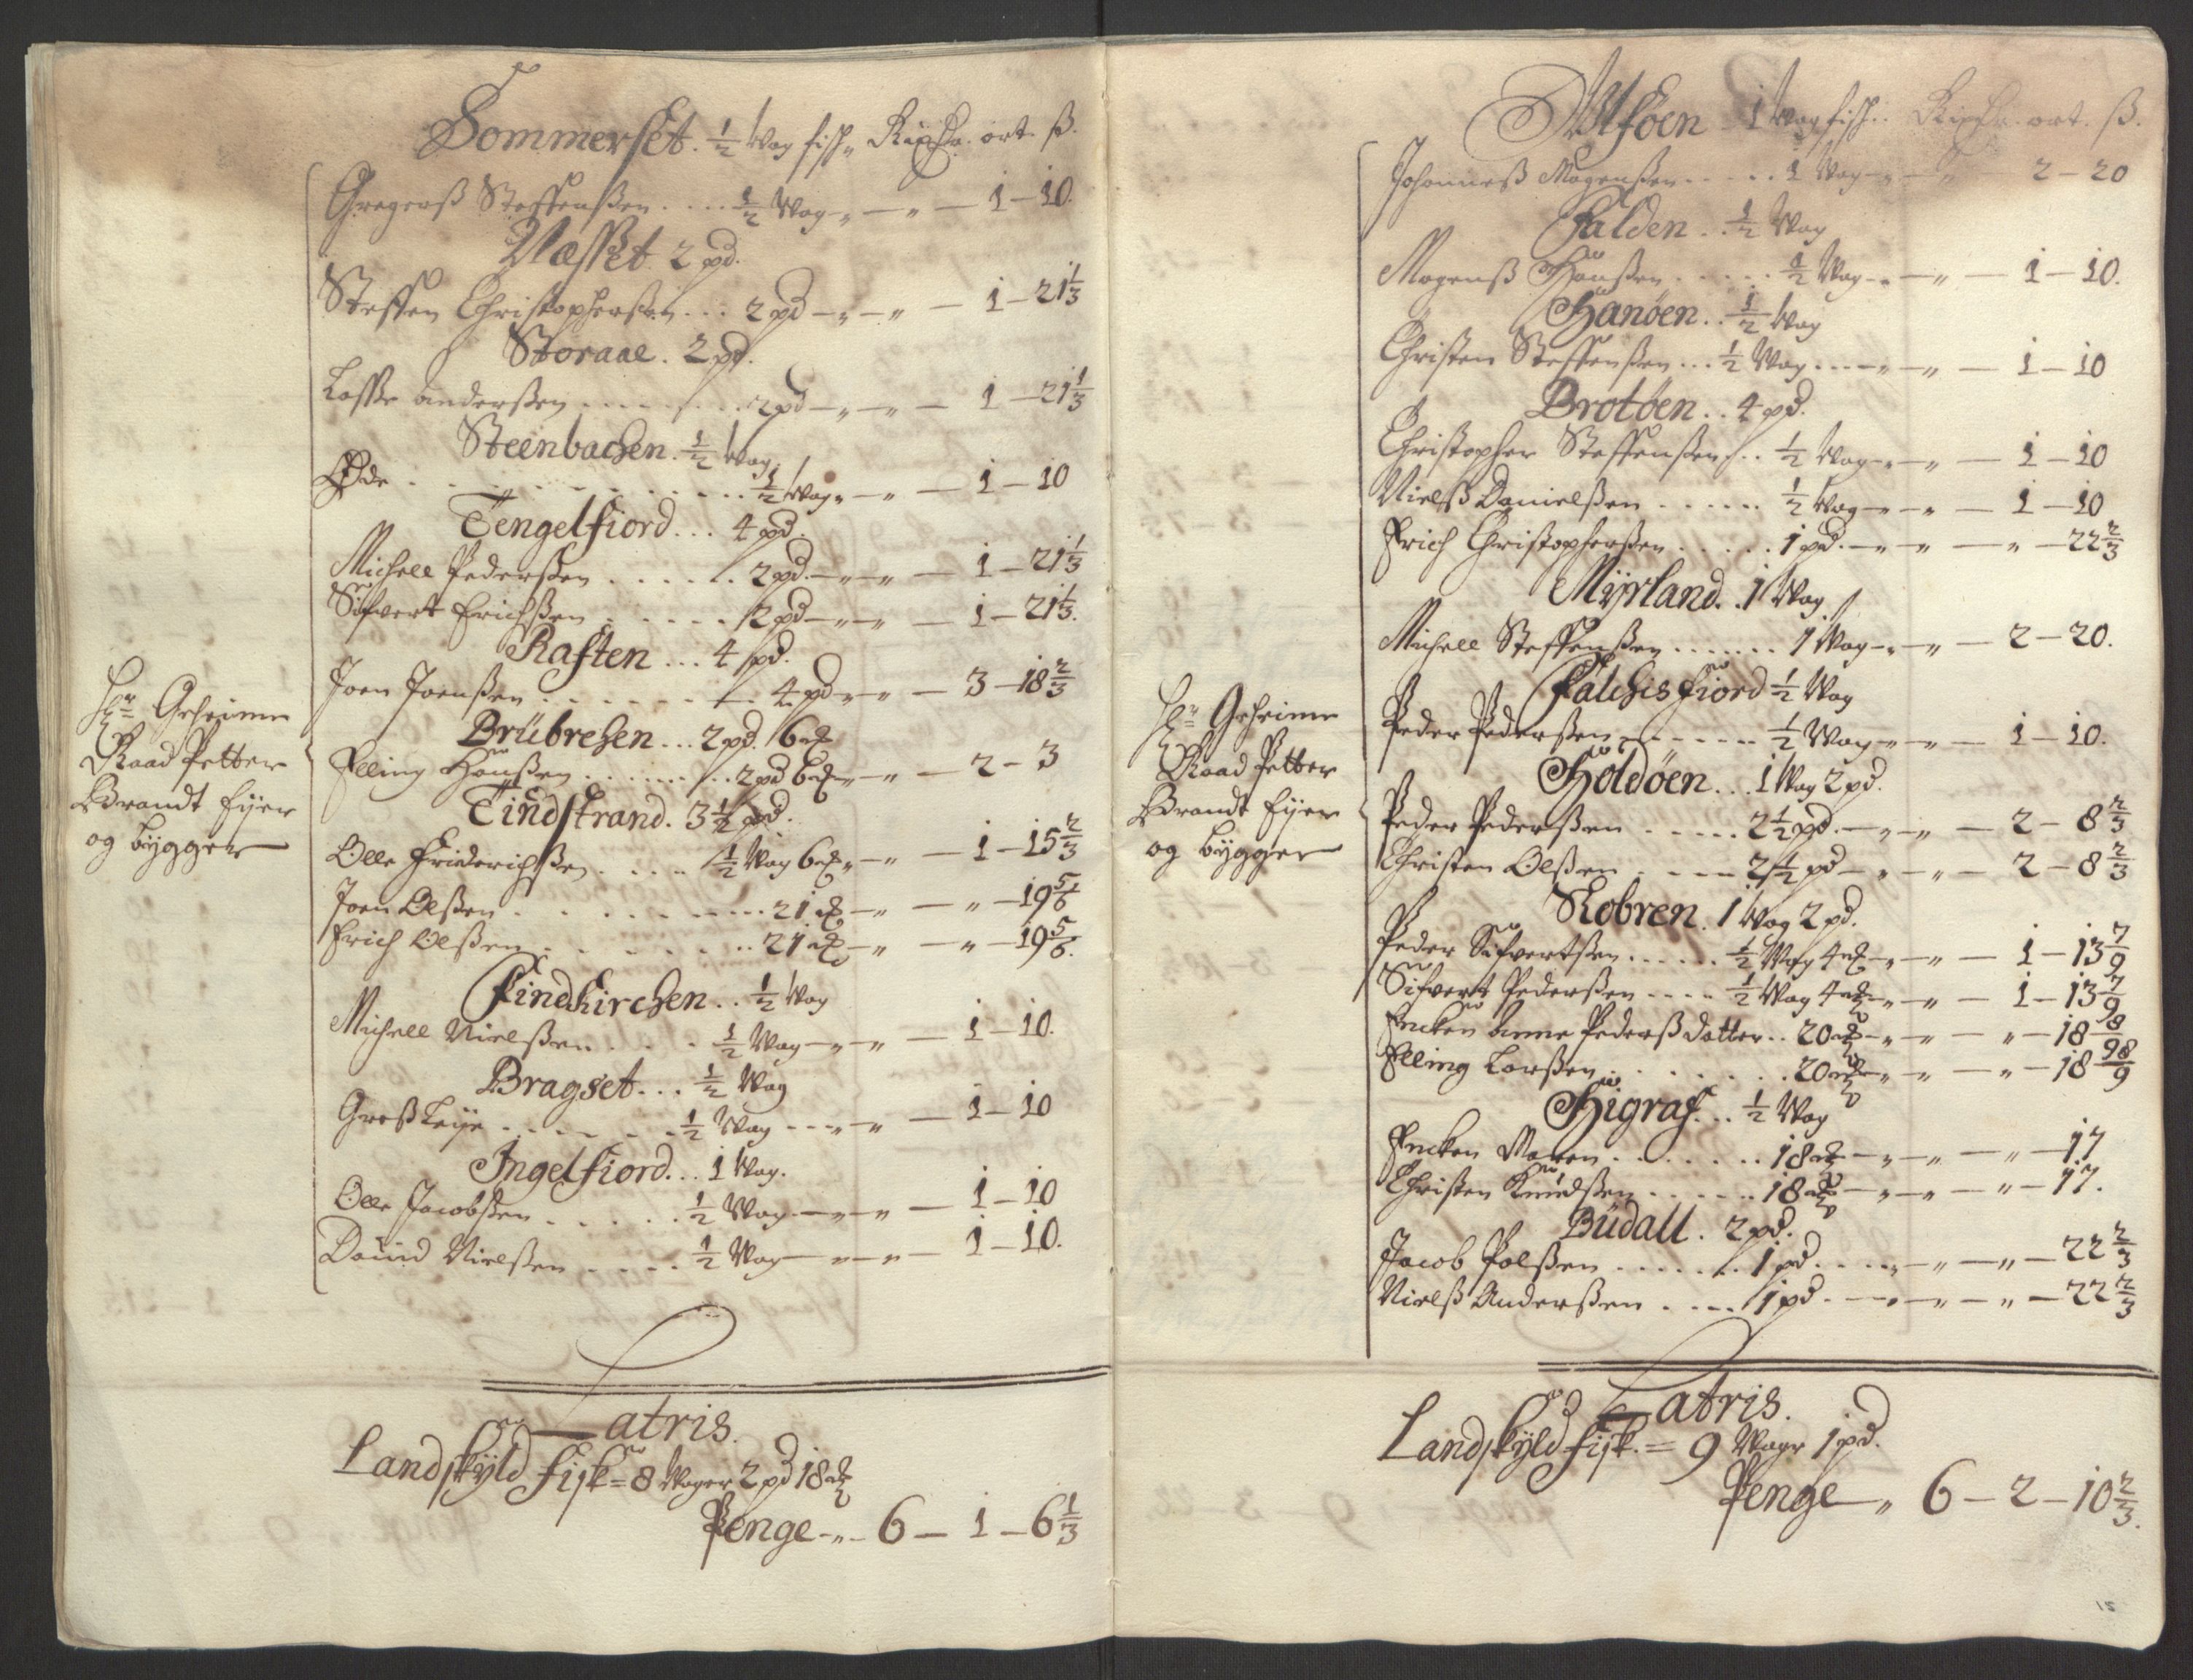 Sommerset. ½ Wog fish„ Rixdr. ort. ß.
Gregerß Steffenßen . . . . ½ Wog „ — „ — 1 — 10.
Næsset 2 pd.
Steffen Christopherßen . . . 2 pd — „ — „ — 1 — 21⅓
Storaae. 2 pd.
Lasse anderßen . . . . . . . . 2 pd — „ — „ — 1 — 21⅓
Steenbachen. ½ Wog
Øde . . . . . . . . . . . . . ½ Wog „ — „ — 1 — 10
Tengelfiord . . . 4 pd.
Michell Pederßen . . . . . . 2 pd. — „ — „ — 1 — 21⅓
Sifvert Erichßen . . . . . . 2 pd — „ — „ — 1 — 21⅓.
Raften . . . 4 pd.
Joen Joenßen . . . . . . . . 4 pd „ — „ — 3 — 18⅔
Brübrechen . . . 2 pd. 6 ℔
Elling Hanßen . . . . . . . 2 pd 6 ℔ „ — „ — 2 — 3
Tindstrand. 3½ pd.
Olle Friederichßen . . . . ½ Wog 6 ℔ „ — „ — 1 — 15⅔
Joen Olßen . . . . . . . . . . 21 ℔ — „ — „ — 19⅚
Erich Olßen . . . . . . . . . 21 ℔ — „ — „ — 19⅚.
Findkirchen . . ½ Wog
Michell Nielßen . . . . ½ Wog — „ — „ — 1 — 10.
Bragset . . . ½ Wog
Greß Leÿe . . . . . . . ½ Wog - - - „ — „ — 1 — 10
Ingelfiord . . . 1 Wog.
Olle Jacobßen . . . . . ½ Wog — „ — „ — 1 — 10
David Nielßen . . . . ½ Wog — „ — „ — 1 — 10.
Hr Geheime
Raad Petter
Brandt Eÿer
og bÿgger
Latris.
Landskÿld fisk = 8 Woger 2 pd 18 ℔
Penge - „ - 6 — 1 — 6⅓
Ulføen 1 Wog fish . . Rixdr. ort. ß.
Johanneß Mogenßen . . . . . 1 Wog — „ — „ 2 — 20
Falden . . ½ Wog
Mogenß Hanßen . . . . . ½ Wog — „ — „ — 1 — 10.
Hanøen . . ½ Wog
Christen Steffenßen . . . ½ Wog . . — „ — „ — 1 — 10
Brotøen . . 4 pd.
Christopher Steffenßen . . ½ Wog — „ — „ — 1 — 10
Nielß Danielßen . . . . . . ½ Wog — „ — „ — 1 — 10
Erich Christopherßen . . . . . 1 pd. — „ — „ — „ — 22⅔
Mÿrland . . 1 Wog
Michell Steffenßen . . . . . . . 1 Wog — „ — „ — 2 — 20.
Falchisfiord ½ Wog
Peder Pederßen . . . . . . . ½ Wog „ — „ — 1 — 10.
Holdøen . . . 1 Wog 2 pd.
Peder Pederßen . . . . . 2½ pd. — „ — „ — 2 — 8⅔
Christen Olßen . . . . . 2½ pd — „ — „ — 2 — 8⅔
Kobren. 1 Wog 2 pd.
Peder Sifvertßen . . . . . . ½ Wog 4 ℔ — „ — „ — 1 — 13 7/9
Sifvert Pederßen . . . . ½ Wog 4 ℔ — „ — „ — 1 — 13 7/9
Encken Anne Pederß datter . . 20 ℔ — „ — „ — „ — 18 8/9
Elling Larßen . . . . . . . . 20 ℔ — „ — „ — „ — 18 8/9
Higraf . . . ½ Wog
Encken Maren . . . . . . . . 18 ℔ — „ — „ — „ — 17
Christen Knudßen . . . . . . 18 ℔ — „ — „ — „ — 17.
Büdall . 2 pd.
Jacob Polßen . . . . . . . 1 pd. . . . „ — „ — „ — 22⅔
Nielß Anderßen . . . . 1 pd . — „ — „ — „ — 22⅔
Hr Geheime
Raad Petter
Brandt Eÿer
og bÿgger
Latris.
Landskÿld fisk. = 9 Woge 1 pd.
Penge — „ 6 — 2 — 10⅔.
15